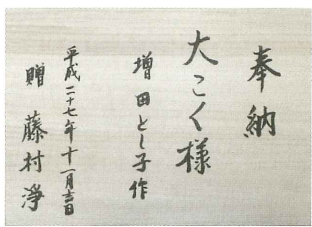 奉納
大こく様
増田とし子作
平成二十七年十一月吉日
贈 藤村淨